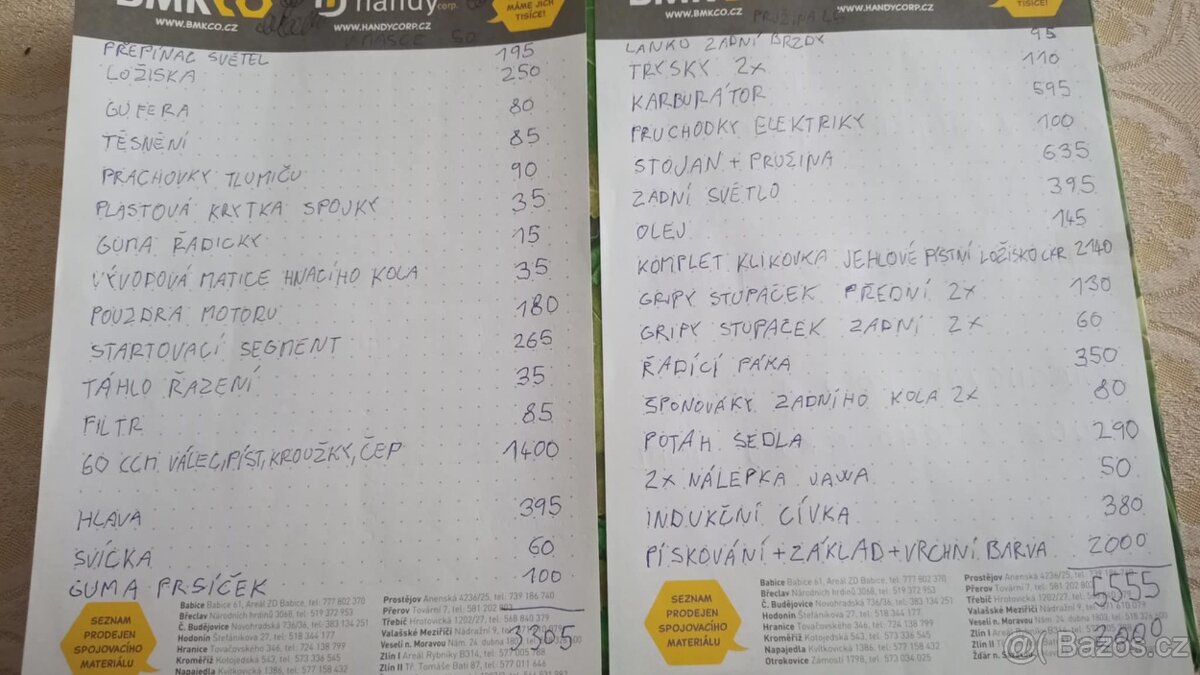 BMKCO
WWW.BMKCO.CZ
handy corp.
WWW.HANDYCORP.CZ
MÁME JICH
TISÍCE!
50
PŘEPÍNAČ SVĚTEL 195
LOŽISKA 250
GUFERA 80
TĚSNĚNÍ 85
PRACHOVKY TLUMIČŮ 90
PLASTOVÁ KRYTKA SPOJKY 35
GUMA ŘADICKY 15
VÝVODOVÁ MATICE HNACÍHO KOLA 35
POUZDRA MOTORU 180
STARTOVACÍ SEGMENT 265
TÁHLO ŘAZENÍ 35
FILTR 85
60 CCM VÁLEC, PÍST, KROUŽKY, ČEP 1400
HLAVA 395
SVÍČKA 60
GUMA PRSÍČEK 100
3305
SEZNAM
PRODEJEN
SPOJOVACÍHO
MATERIÁLU
Babice Babice 61, Areál ZD Babice, tel: 777 802 370
Břeclav Národních hrdinů 3068, tel: 519 372 953
Č. Budějovice Novohradská 736/36, tel: 383 134 251
Hodonín Štefánikova 27, tel: 518 344 177
Hranice Tovačovského 346, tel: 724 138 799
Kroměříž Kotojedská 543, tel: 573 336 545
Napajedla Kvítkovická 1386, tel: 577 158 432
Prostějov Anenská 4236/25, tel: 739 186 740
Přerov Tovární 7, tel: 581 202 803
Třebíč Hrotovická 1202/27, tel: 568 840 379
Valašské Meziříčí Nádražní 9,
Veselí n. Moravou Nám. 24. dubna
Zlín I Areál Rybníky 314, tel: 577 005 788
Zlín II Tř. Tomáše Bati 87, tel: 577 011 646
BMKCO
WWW.BMKCO.CZ
WWW.HANDYCORP.CZ
TISÍCE!
PRUŽINA
LANKO ZADNÍ BRZDY 95
TRYSKY 2X 110
KARBURÁTOR 595
PRUCHODKY ELEKTRIKY 100
STOJAN + PRUŽINA 635
ZADNÍ SVĚTLO 395
OLEJ 145
KOMPLET KLIKOVKA JEHLOVÉ PÍSTNÍ LOŽISKO CKR 2140
GRIPY STUPAČEK PŘEDNÍ 2X 130
GRIPY STUPAČEK ZADNÍ 2X 60
ŘADÍCÍ PÁKA 350
ŠPONOVÁKY ZADNÍHO KOLA 2X 80
POTAH SEDLA 290
2X NÁLEPKA JAWA 50
INDUKČNÍ CÍVKA 380
PÍSKOVÁNÍ + ZÁKLAD + VRCHNÍ BARVA 2000
5555
2000
SEZNAM
PRODEJEN
SPOJOVACÍHO
MATERIÁLU
Babice Babice 61, Areál ZD Babice, tel: 777 802 370
Břeclav Národních hrdinů 3068, tel: 519 372 953
Č. Budějovice Novohradská 736/36, tel: 383 134 251
Hodonín Štefánikova 27, tel: 518 344 177
Hranice Tovačovského 346, tel: 724 138 799
Kroměříž Kotojedská 543, tel: 573 336 545
Napajedla Kvítkovická 1386, tel: 577 158 432
Otrokovice Zámostí 1798, tel: 573 034 025
Prostějov Anenská 4236/25, tel: 739 186 740
Přerov Tovární 7, tel: 581 202
Třebíč Hrotovická 1202/27, tel: 568
Valašské Meziříčí Nádražní 9,
Veselí n. Moravou Nám. 24. dubna
Zlín I Areál Rybníky 314, tel:
Zlín II Tř. Tomáše Bati 87, tel:
Žďár n. Sázavou
Bazos.cz